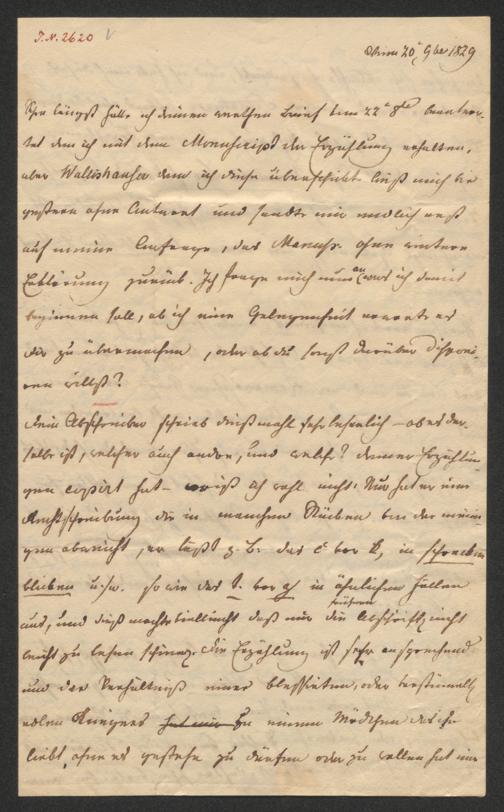 I.N. 2620
Wien 20t 9ber 1829
Schon längst hätte ich deinen werthen Brief vom 22t 8ber beantwor-
tet den ich mit dem Manuscript der Erzählung erhalten,
aber Wallishauser dem ich diese überschickte ließ mich bis
gestern ohne Antwort und sandte mir endlich erst
auf meine Anfrage, das Manusc. ohne weitere
Erklärung zurück. Ich frage mich nun an was ich damit
beginnen soll, ob ich eine Gelegenheit erwarte es
dir zu übermachen, oder ob du sonst darüber disponi-
ren willst?
Dein Abschreiber schrieb dießmahl sehr leserlich – ob es der-
selbe ist, welcher auch andre, und welche? deiner Erzählun-
gen copirt hat – weiß ich wohl nicht. Nur hat er eine
Rechtschreibung die in manchen Stücken von der meini-
gen abweicht, er läßt z. B. das c vor k, in schrecken
blicken u.s.w. so wie das t vor z in ähnlichen Fällen
aus, und dieß machte vielleicht daß mir die früheren Abschrift nicht
leicht zu lesen schien. Die Erzählung ist sehr ansprechend
und das Verhältniß eines blessirten, oder
edlen Kriegers zu einem Mädchen das ihn
liebt, ohne es gestehen zu dürfen oder zu wollen hat eine